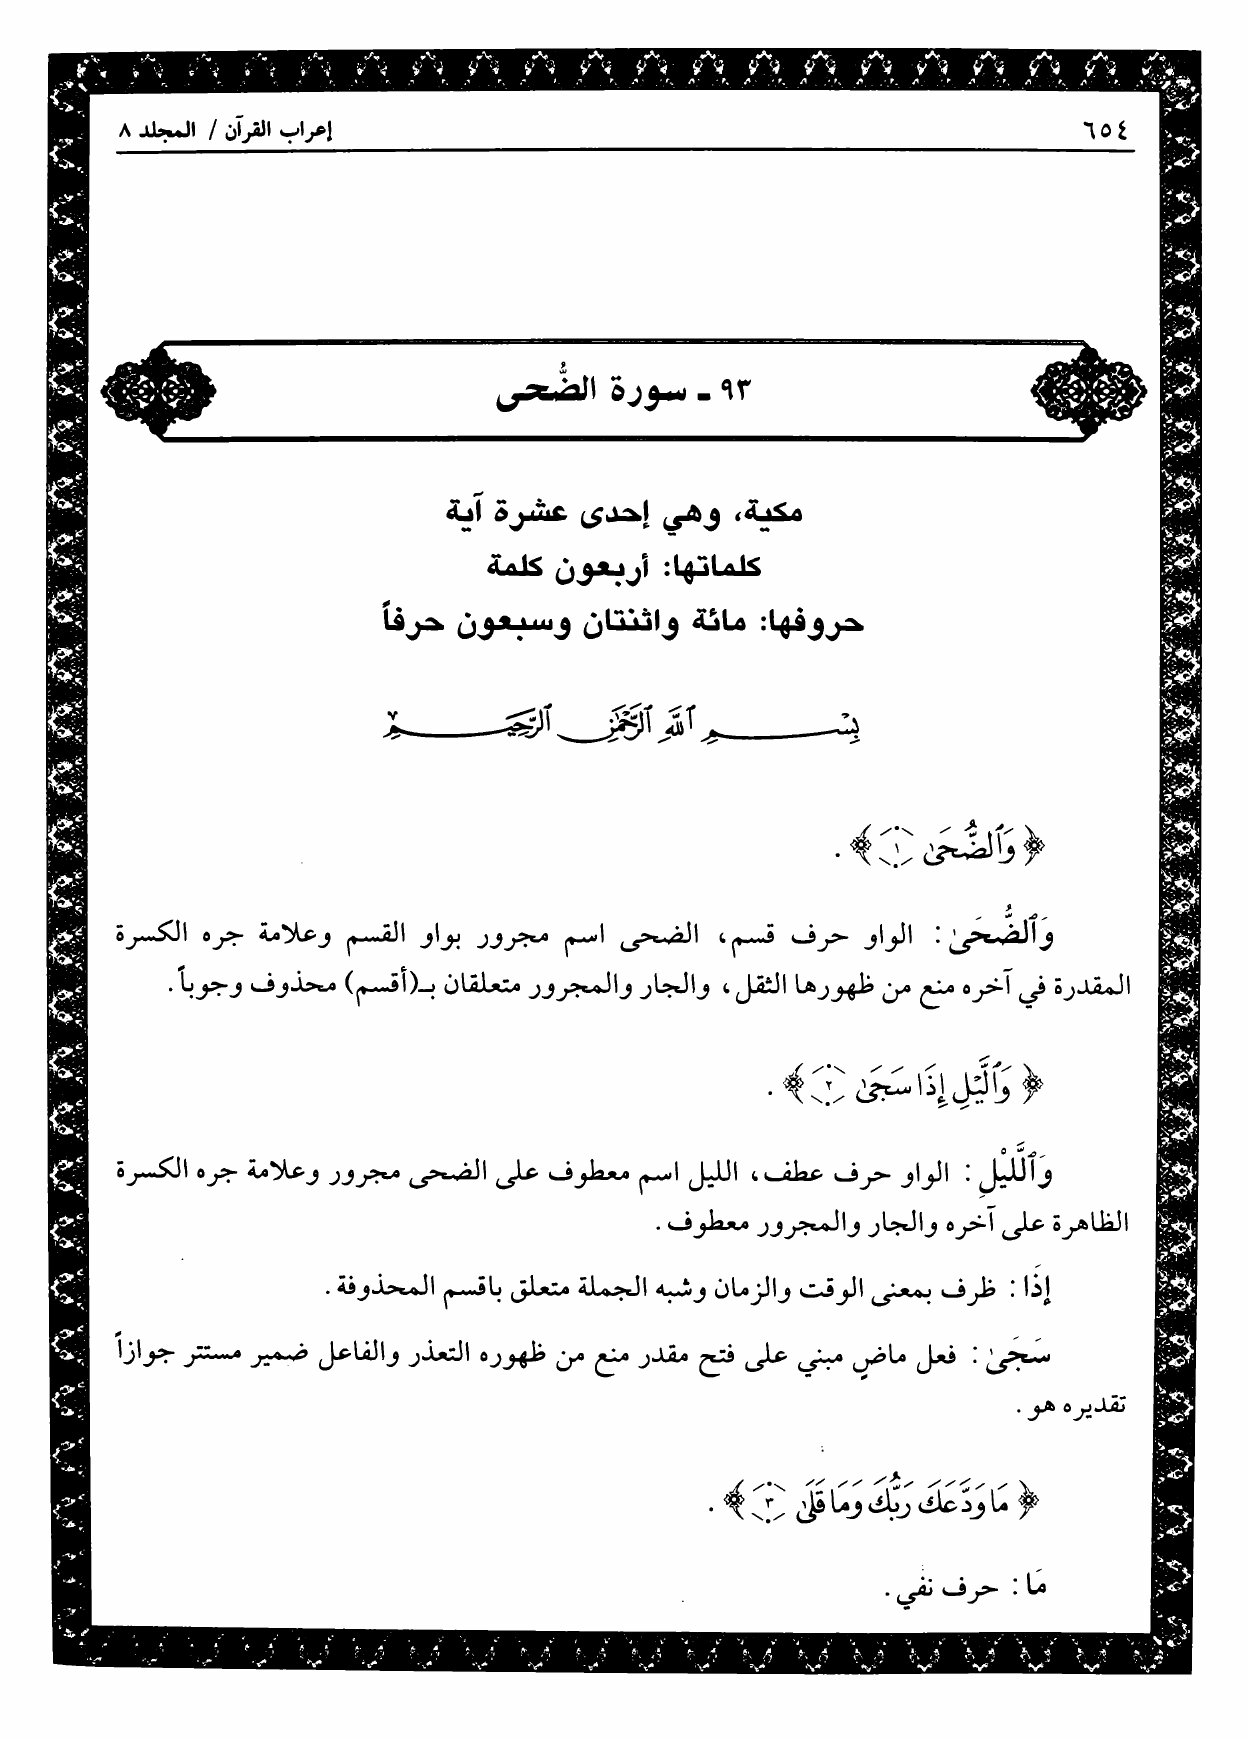 ٦٥٤
إعراب القرآن / المجلد ٨
٩٣ ـ سورة الضُّحى
مكية، وهي إحدى عشرة آية
كلماتها: أربعون كلمة
حروفها: مائة واثنتان وسبعون حرفاً
بِسْمِ ٱللَّهِ ٱلرَّحْمَٰنِ ٱلرَّحِيمِ
﴿ وَٱلضُّحَىٰ ١ ﴾ .
وَٱلضُّحَىٰ : الواو حرف قسم، الضحى اسم مجرور بواو القسم وعلامة جره الكسرة
المقدرة في آخره منع من ظهورها الثقل، والجار والمجرور متعلقان بـ(أقسم) محذوف وجوباً.
﴿ وَٱلَّيْلِ إِذَا سَجَىٰ ٢ ﴾ .
وَٱلَّلَيْلِ : الواو حرف عطف، الليل اسم معطوف على الضحى مجرور وعلامة جره الكسرة
الظاهرة على آخره والجار والمجرور معطوف.
إِذَا : ظرف بمعنى الوقت والزمان وشبه الجملة متعلق باقسم المحذوفة.
سَجَىٰ : فعل ماضٍ مبني على فتح مقدر منع من ظهوره التعذر والفاعل ضمير مستتر جوازاً
تقديره هو .
﴿ مَا وَدَّعَكَ رَبُّكَ وَمَا قَلَىٰ ٣ ﴾ .
مَا : حرف نفي.